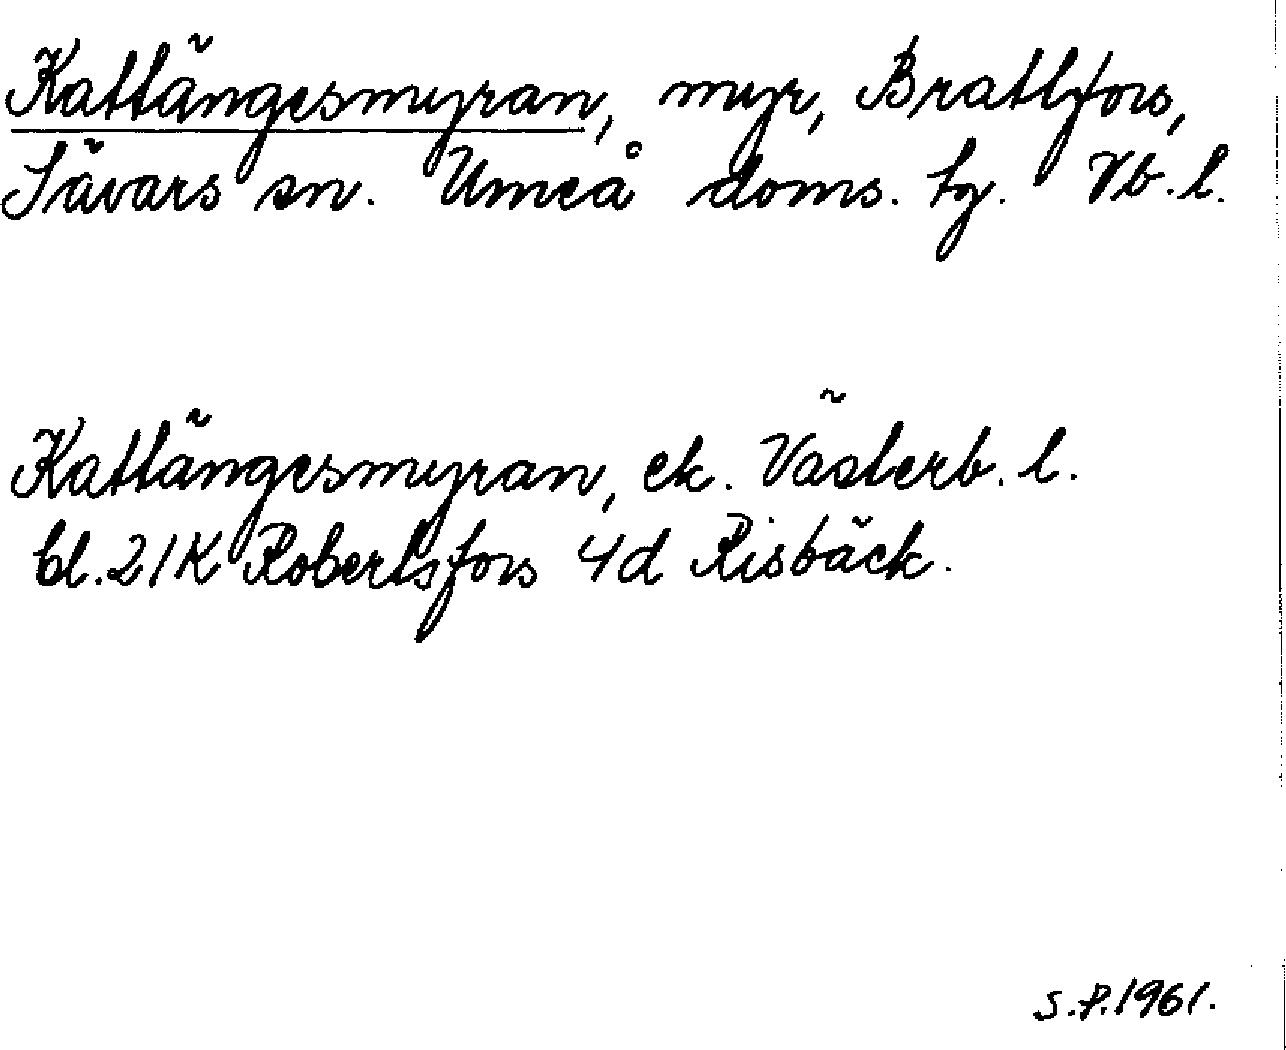 Kattängesmyran, myr, Brattfors,
Sävars sn. Umeå doms. tg. Vb. l.
Kattängesmyran, ek. Västerb. l.
bl. 21K Robertsfors 4d Risbäck.
S.P. 1961.